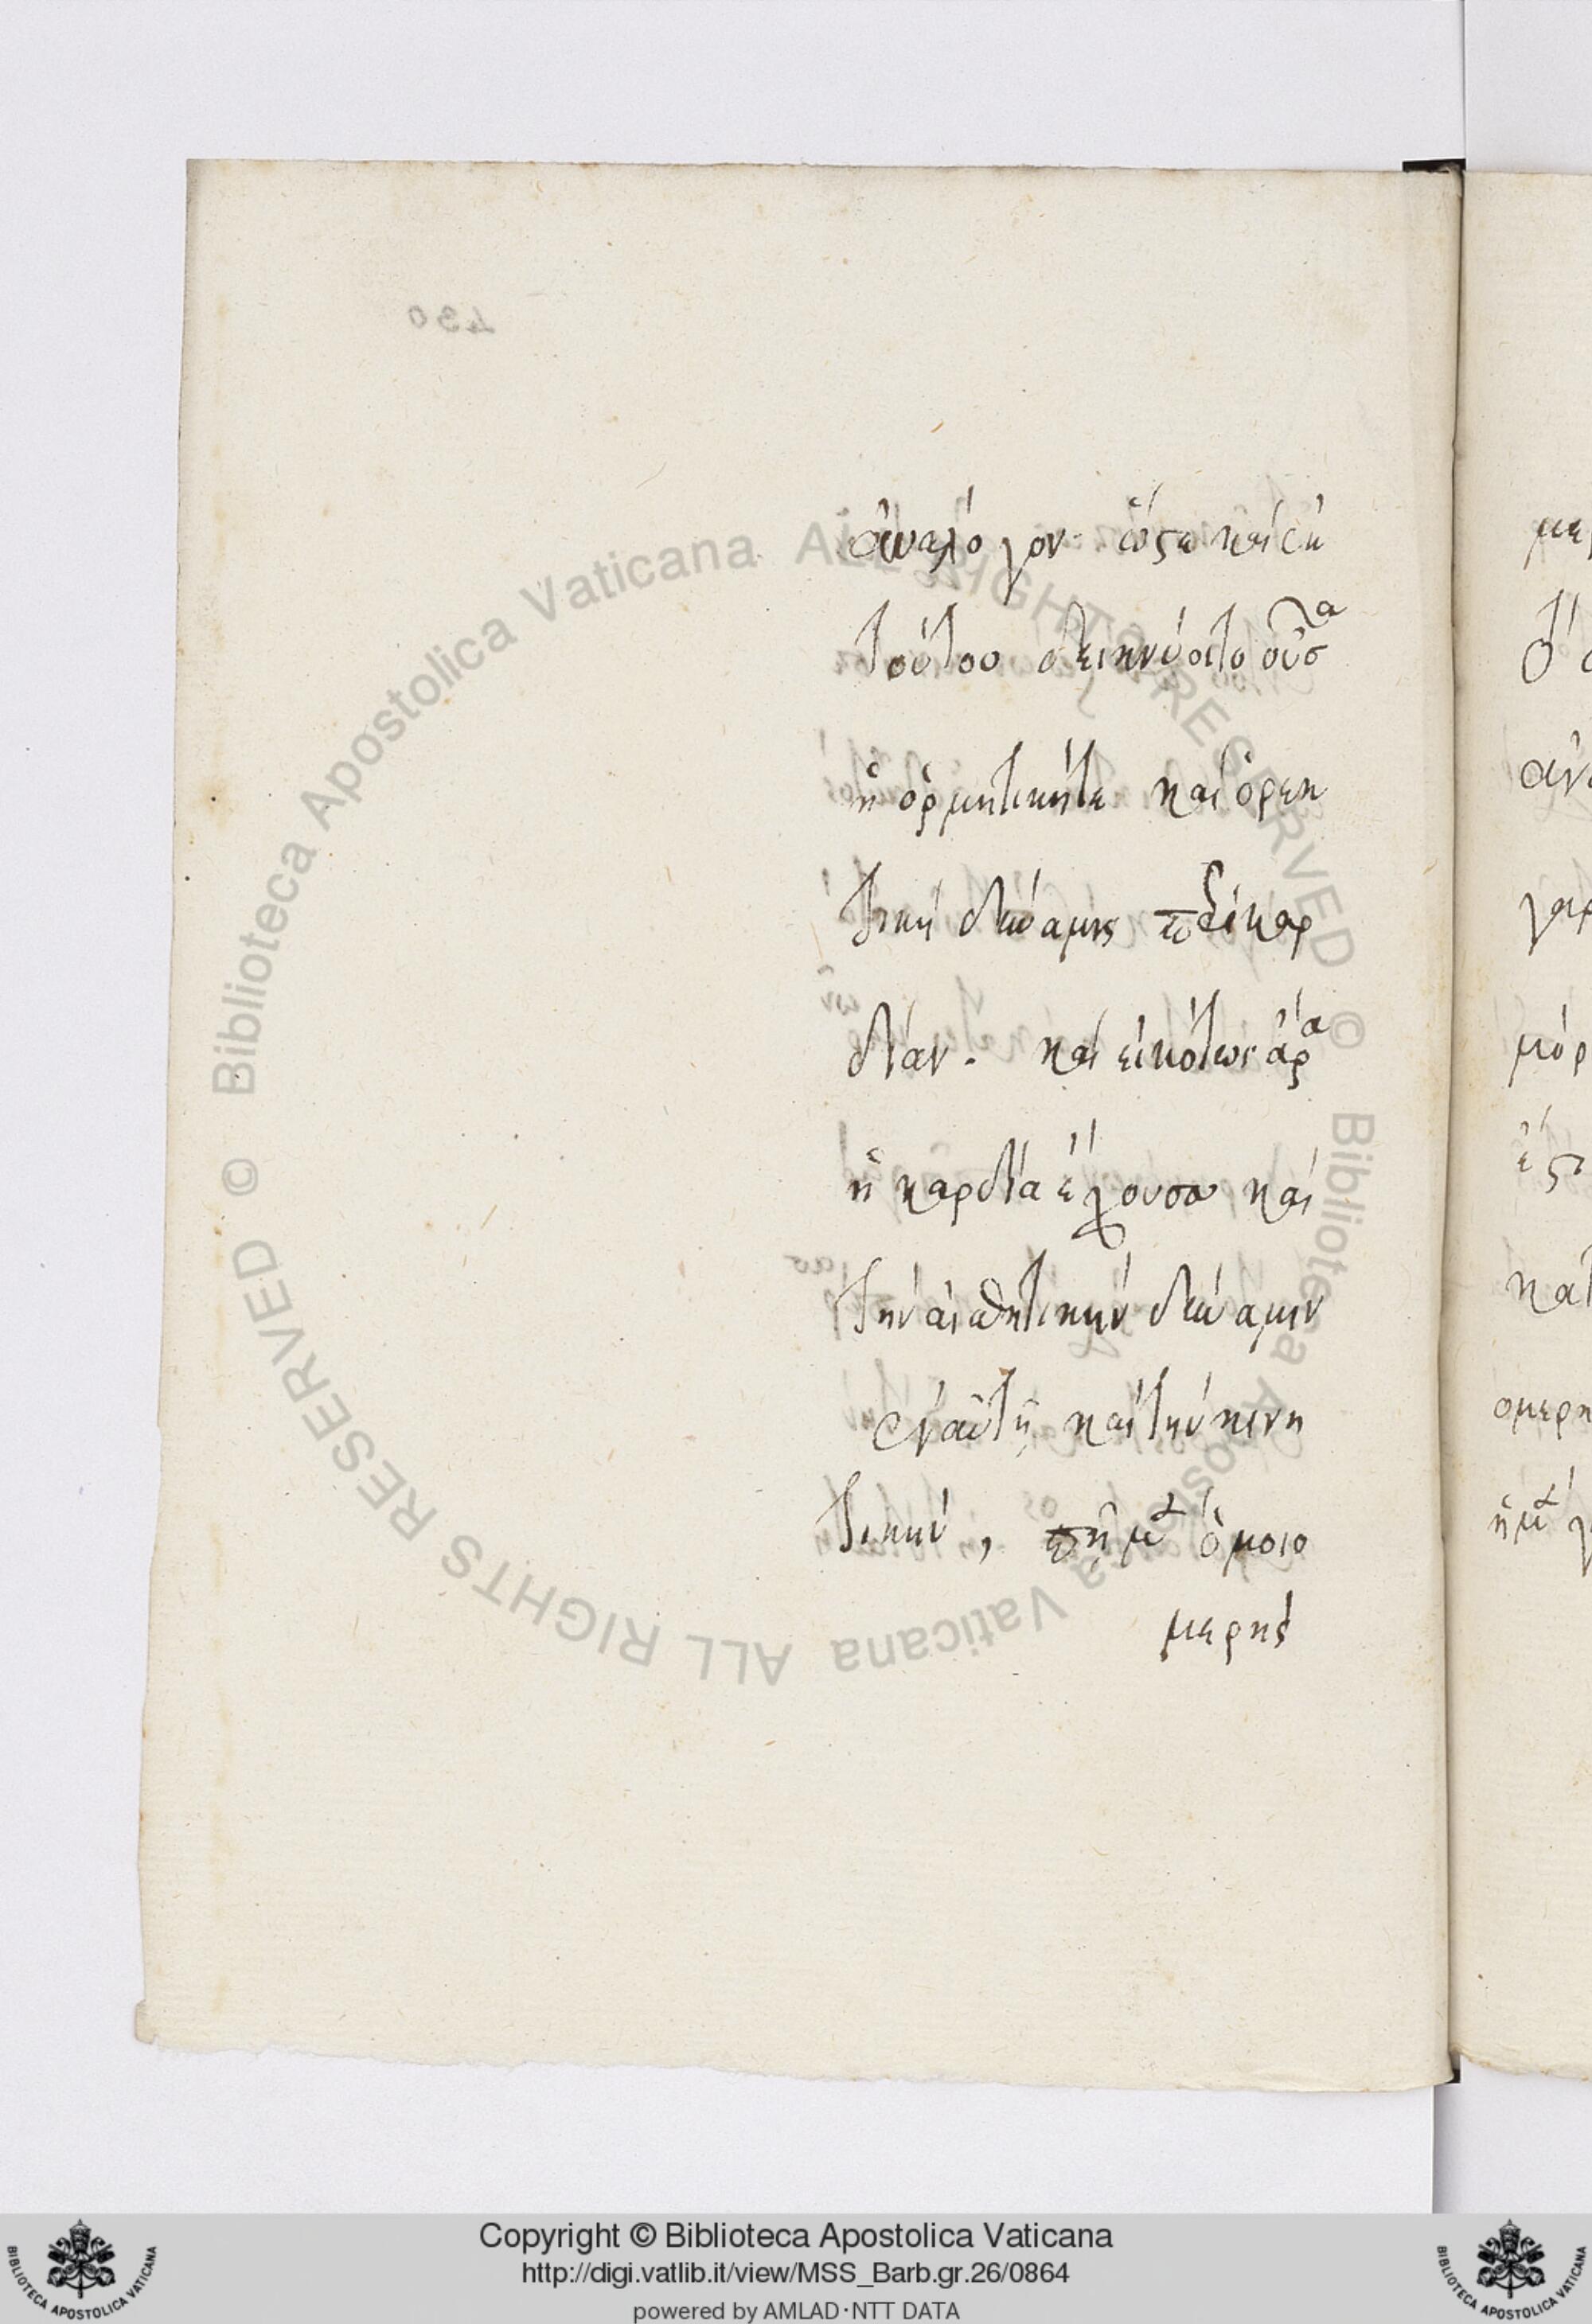 430
ἀνάλογον· ὥστε καὶ ἐκ
τούτου δεικνύοιτο οὖσα
ἡ ὁρμητική τε καὶ ὀρεκ
τικὴ δύναμις περὶ καρ
δίαν. καὶ εἰκότως ἄρα
ἡ καρδία ἔχουσα καὶ
τὴν αἰσθητικὴν δύναμιν
ἐν αὐτῇ καὶ τὴν κινη
τικήν, πῇ μὲν ὁμοιο
μερής
Biblioteca Apostolica Vaticana ALL RIGHTS RESERVED ©
Biblioteca Apostolica Vaticana ALL RIGHTS RESERVED ©
Copyright © Biblioteca Apostolica Vaticana
http://digi.vatlib.it/view/MSS_Barb.gr.26/0864
powered by AMLAD·NTT DATA
BIBLIOTECA APOSTOLICA VATICANA
BIBLIOTECA APOSTOLICA VATICANA